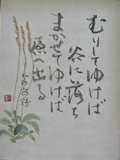 むりしてゆけば
谷に落ち
まかせてゆけば
原へ出る